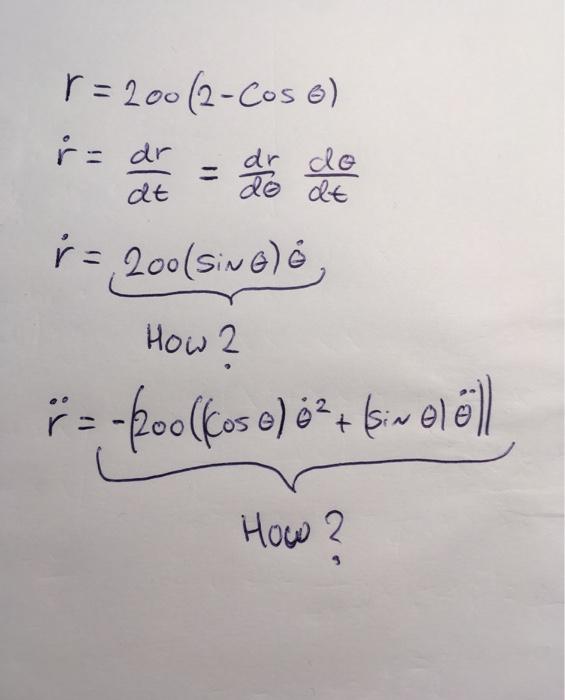 r = 200(2-Cos θ)
ṙ = dr/dt = dr/dθ dθ/dt
ṙ = 200(sin θ) θ̇
How ?
r̈ = -(200((cos θ) θ̇² + (sin θ) θ̈))
How ?